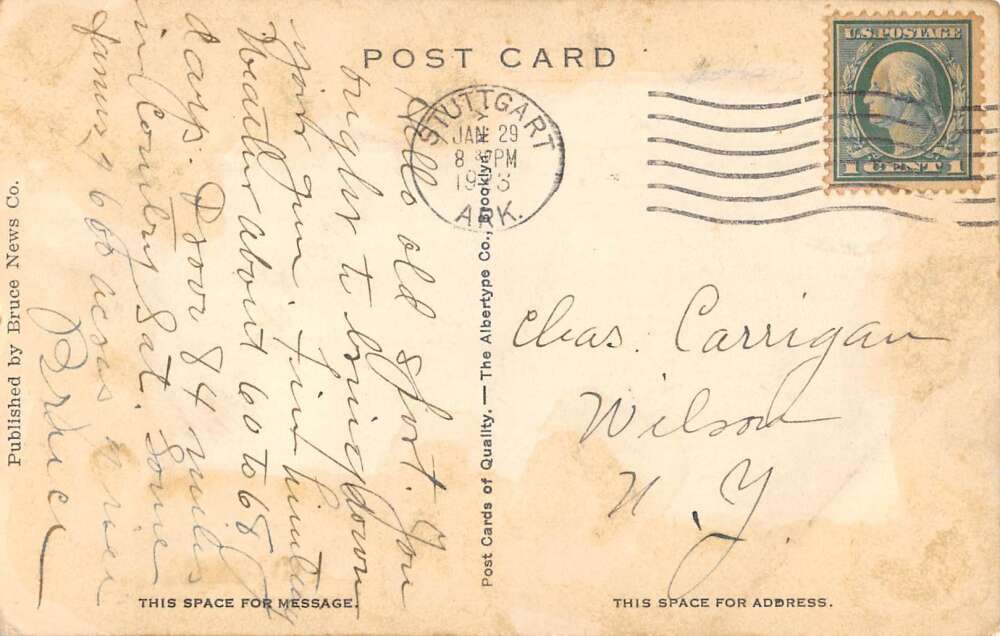 POST CARD
U.S. POSTAGE
1 CENT 1
STUTTGART
JAN 29
8 PM
ARK.
Hello old sport. You
ought to bring down
your gun. Fine hunting
Weather about 60 to 68
days. Drove 84 miles
in Country Sat. Some
farms, 9 660 acres
Chas. Carrigan
Wilson
N. Y.
Published by Bruce News Co.
Post Cards of Quality. — The Albertype Co., Brooklyn
THIS SPACE FOR MESSAGE.
THIS SPACE FOR ADDRESS.